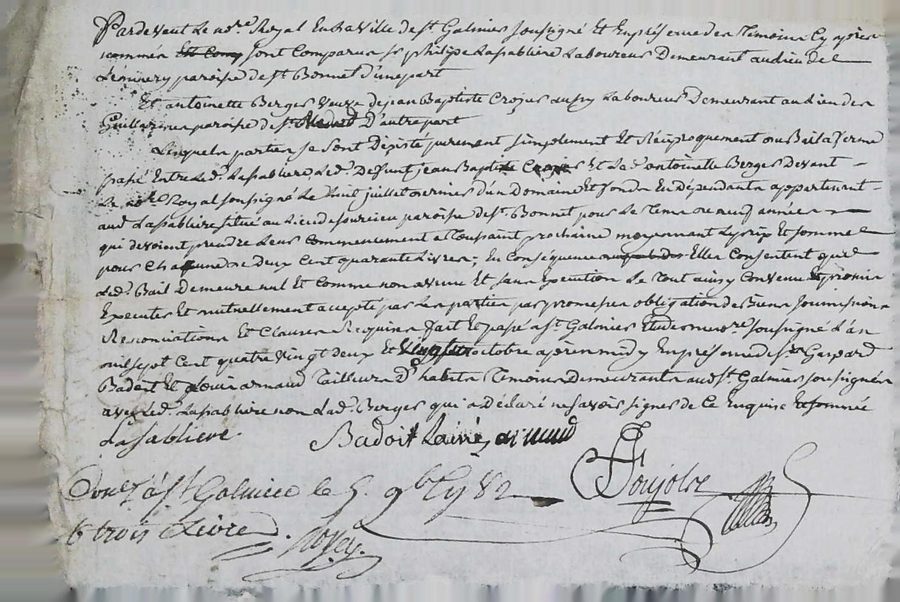 Pardevant Le nore Royal En La Ville de st Galmier soussigné Et En presence des Temoins Cy apres
nommés Sont Comparus sr philipe Lasabliere Laboureur Demeurant au Lieu de
paroisse de st Bonnet d'une part
Et antoinette Berger Veuve de jean Baptiste aussy Laboureur Demeurant au Lieu des
paroisse de st D'autre part
Lesquels parties se sont Depisté purement simplement Et Reciproquement du Bail a ferme
passé Entre Led. Lasabliere Led. Defunt jean Baptiste Et La de antoinette Berger Devant
Le nore Royal soussigné Le huit juillet dernier d'un Domaine Et fonds En Dépendants appartenant
aud Lasabliere situé au Lieu de paroisse de st Bonnet pour Le Tems de neuf années
qui devoient prendre Leur Commencement a toussaint prochaine moyennant Le prix Et somme
pour Chaqune de Deux Cent quarante Livres, En Consequence Elles Consentent que
Led. Bail demeure nul Et Comme non avenu Et sans Execution Le Tout ainsy Convenu
Executer Et mutuellement accepté par Les parties par promesses obligation de Biens soumissions
Renonciations Et Clauses Requises fait Et passé a st Galmier Etude du nore soussigné L'an
mil sept Cent quatre Vingt deux Et octobre apres midy En presence de sr Gaspard
Badoit Et Louis armand Tailleurs D'habits Temoins Demeurants aud st Galmier soussignés
avec Led. Lasabliere non Lad. Berger qui a declaré ne savoir signer de Ce Enquise Et sommée
Lasabliere Badoit Louis armand
Ponjolor
Conlé a st Galmier le 5. 9bre 1782
trois livres